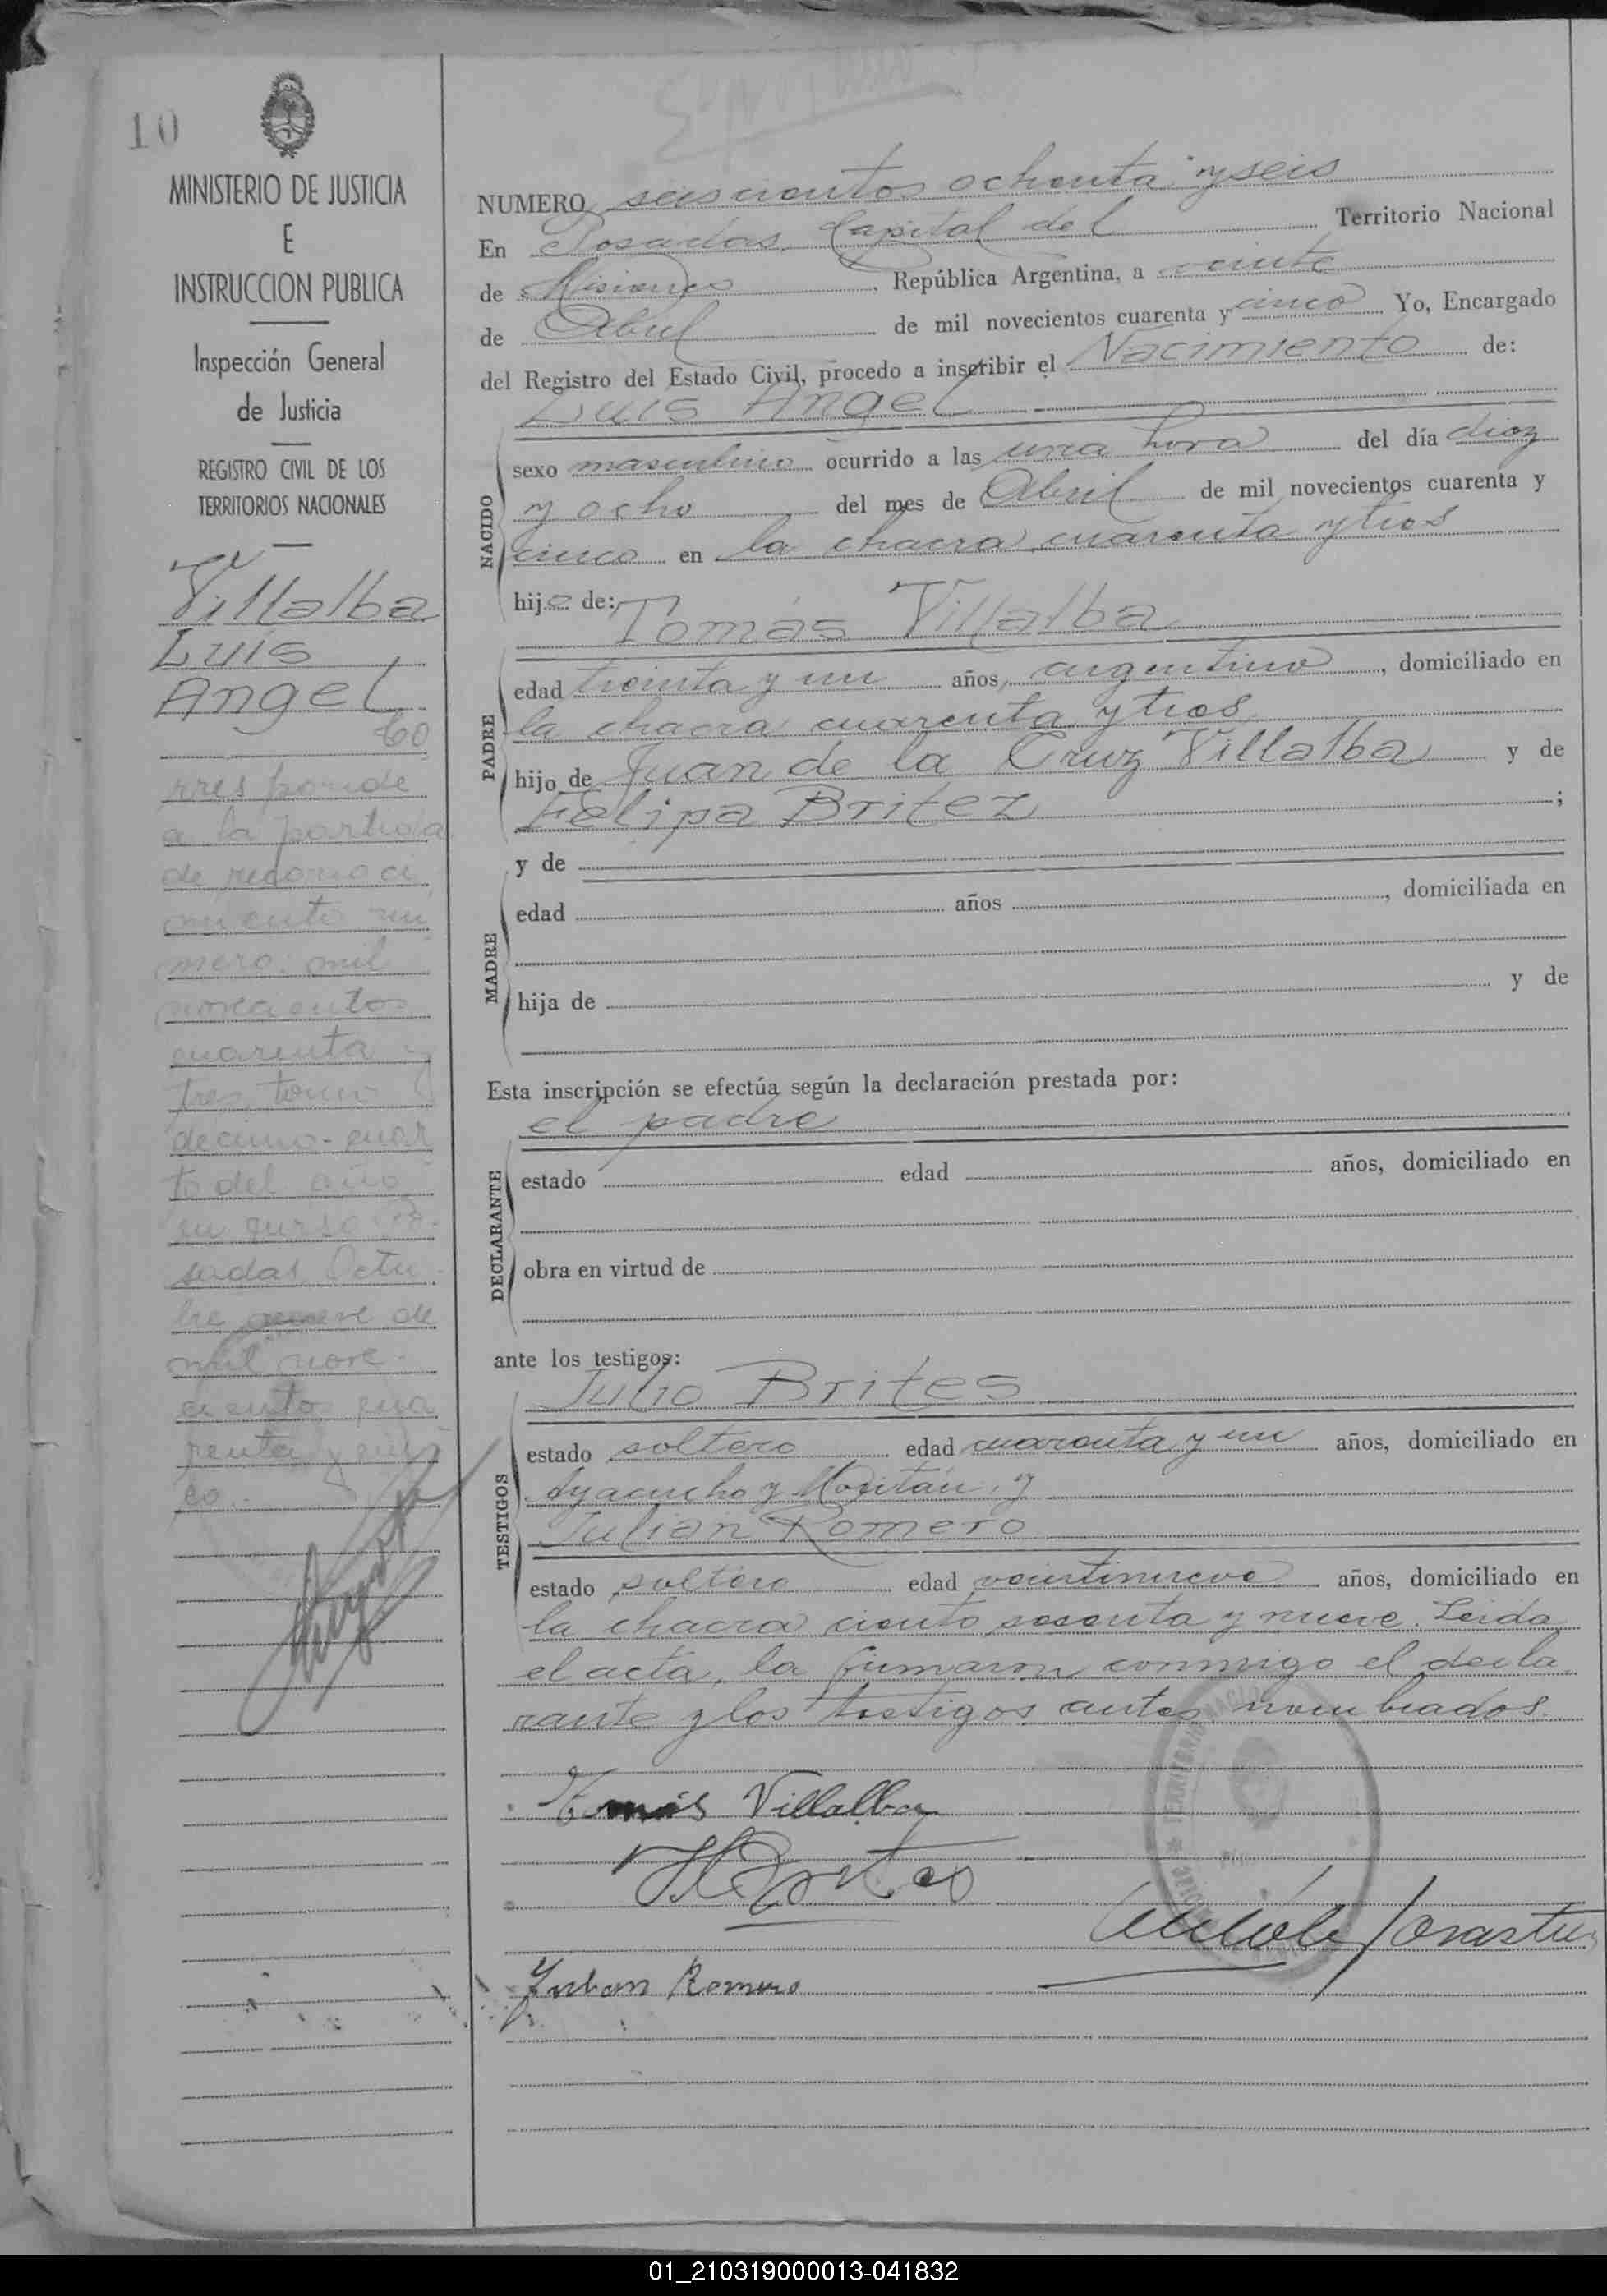 10
MINISTERIO DE JUSTICIA
E
INSTRUCCION PUBLICA
Inspección General
de Justicia
REGISTRO CIVIL DE LOS
TERRITORIOS NACIONALES
Villalba
Luis
Angel
Co
rresponde
a la partida
de reconoci
miento nu
mero mil
novecientos
cuarenta y
tres, tomo
decimo-cuar
to del año
en curso Po-
sadas Octu-
bre nueve de
mil nove-
cientos cua
renta y cin
co.-
NUMERO seiscientos ochenta y seis
En Posadas, Capital del Territorio Nacional
de Misiones, República Argentina, a veinte
de Abril de mil novecientos cuarenta y cinco Yo, Encargado
del Registro del Estado Civil, procedo a inscribir el Nacimiento de:
Luis Angel
NACIDO
sexo masculino ocurrido a las una hora del día diez
y ocho del mes de Abril de mil novecientos cuarenta y
cinco en la chacra cuarenta y tres
hijo de: Tomás Villalba
PADRE
edad treinta y un años, argentino, domiciliado en
la chacra cuarenta y tres
hijo de Juan de la Cruz Villalba y de
Felipa Britez ;
y de
MADRE
edad años , domiciliada en
hija de y de
Esta inscripción se efectúa según la declaración prestada por:
el padre
DECLARANTE
estado edad años, domiciliado en
obra en virtud de
ante los testigos:
Julio Brites
TESTIGOS
estado soltero edad cuarenta y un años, domiciliado en
Ayacucho y Kapitán, y
Julian Romero
estado soltero edad veintinueve años, domiciliado en
la chacra ciento sesenta y nueve. Leida
el acta, la firmaron conmigo el decla
rante y los testigos antes nombrados.
Tomás Villalba
Brites
Julian Romero
01_210319000013-041832